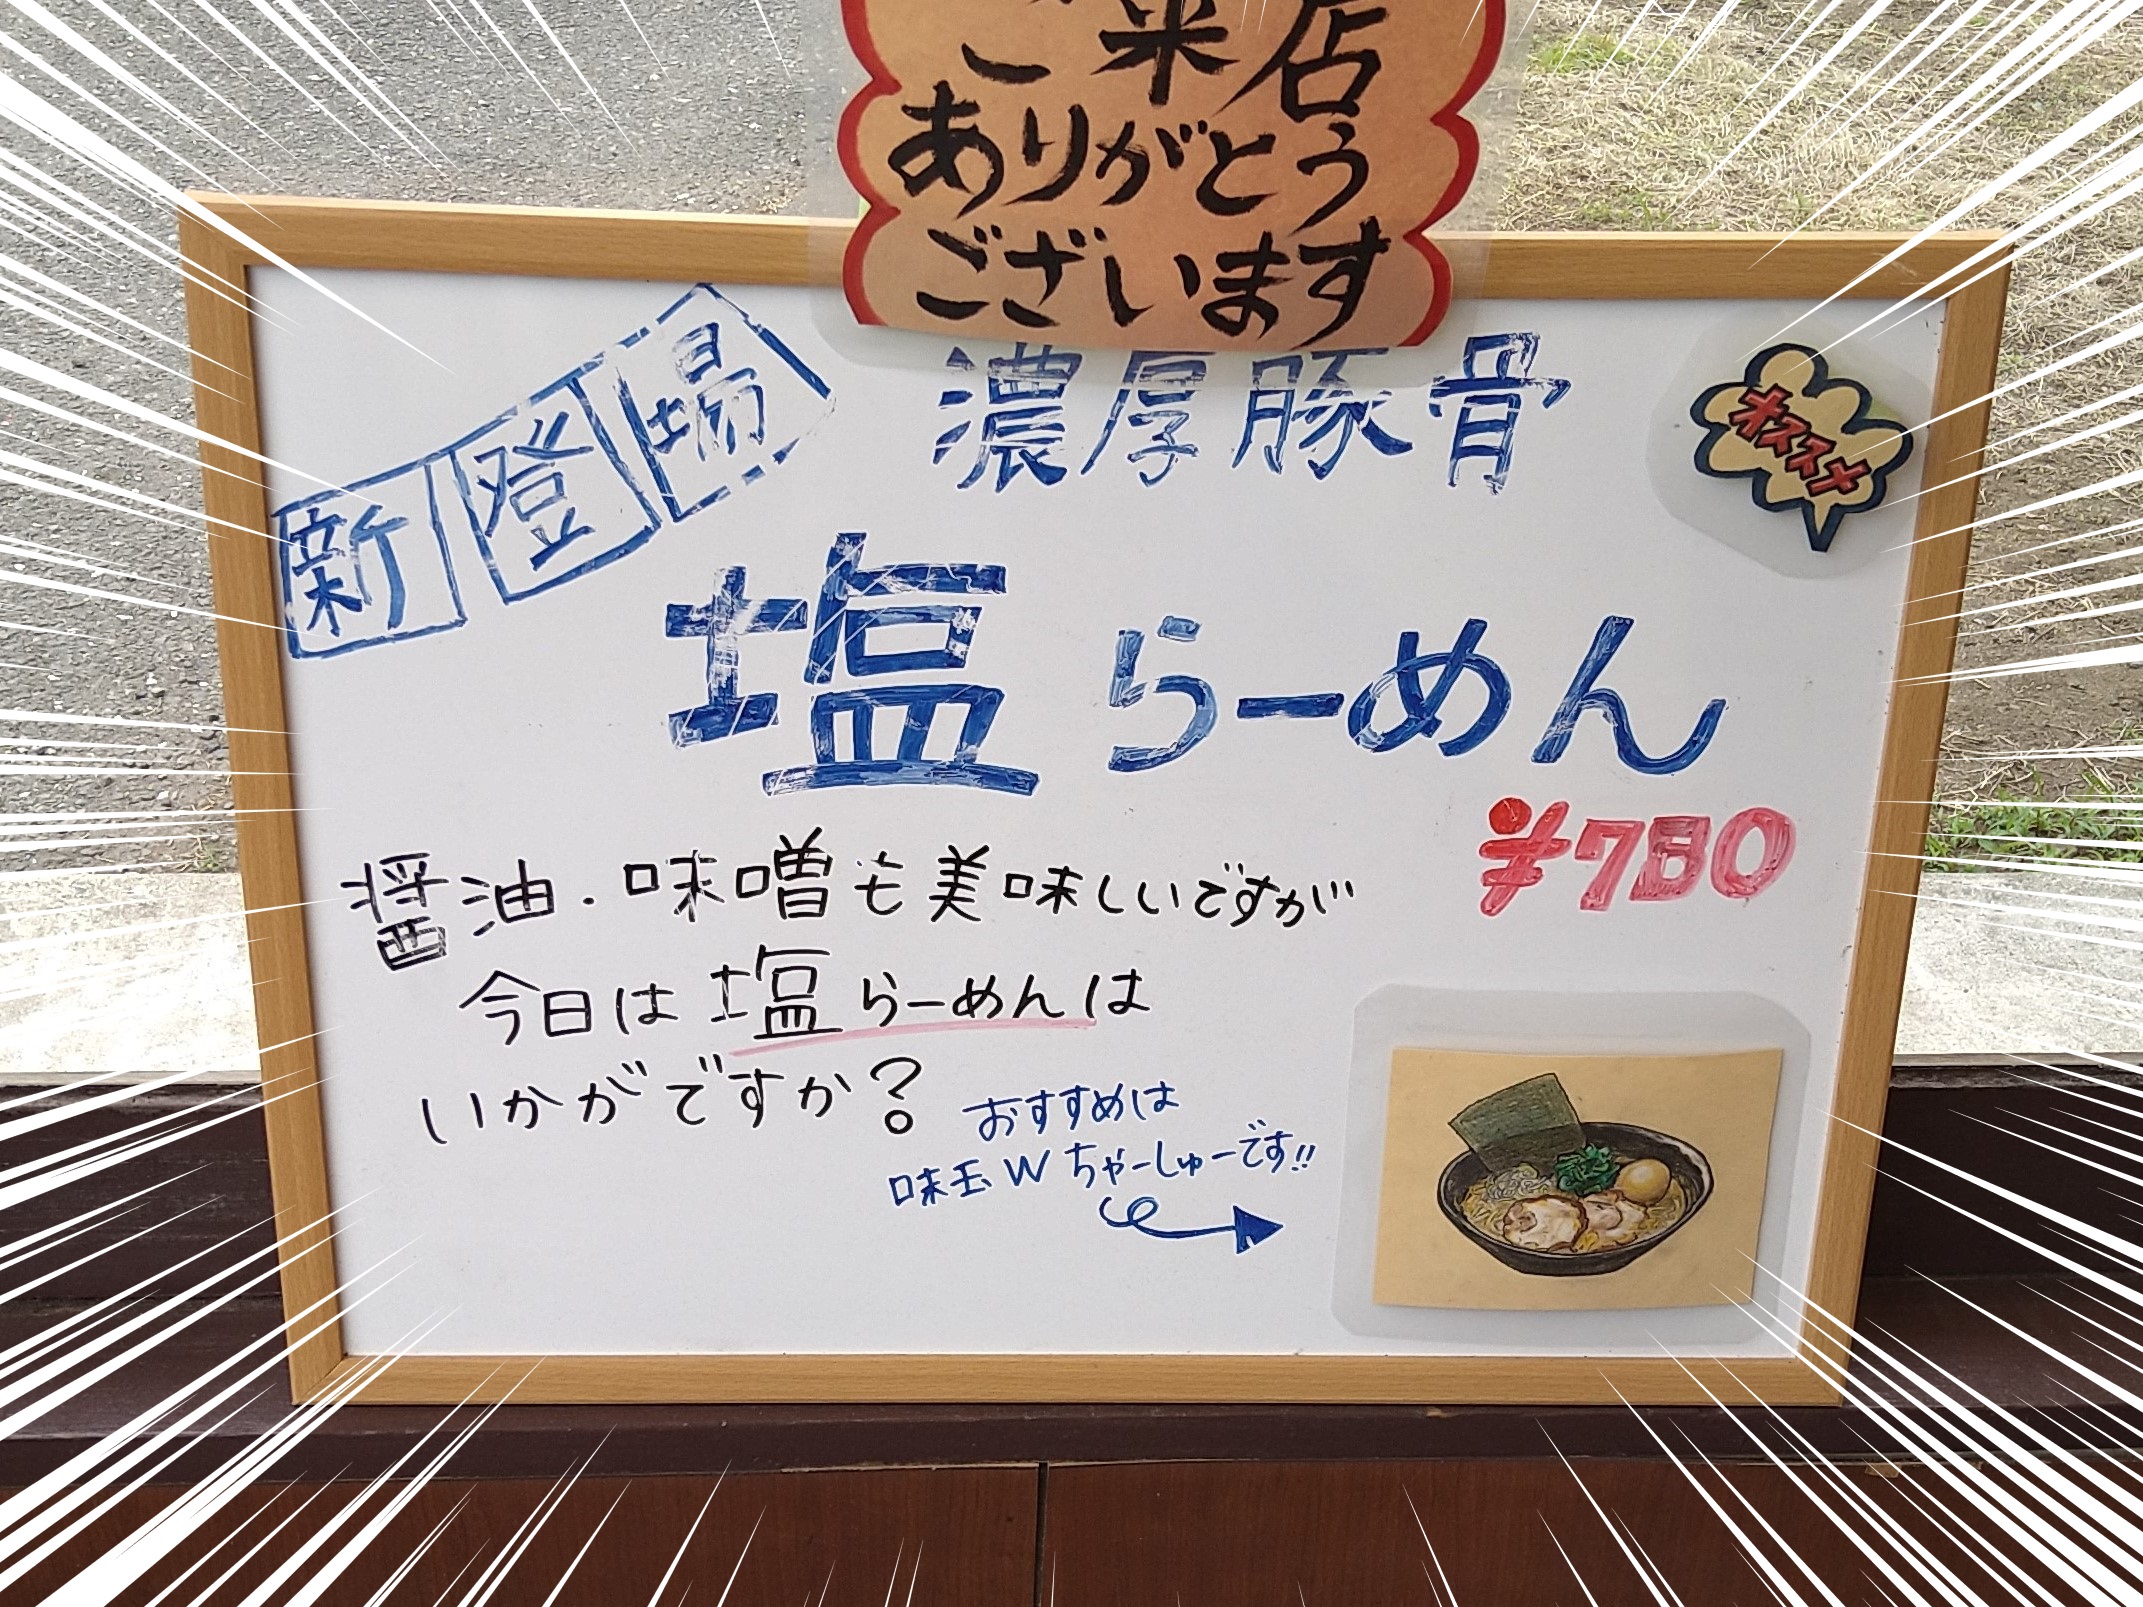 ご来店
ありがとう
ございます
新登場
濃厚豚骨
オススメ
塩らーめん
¥780
醤油・味噌も美味しいですが
今日は塩らーめんは
いかがですか?
おすすめは
味玉Wちゃーしゅーです!!